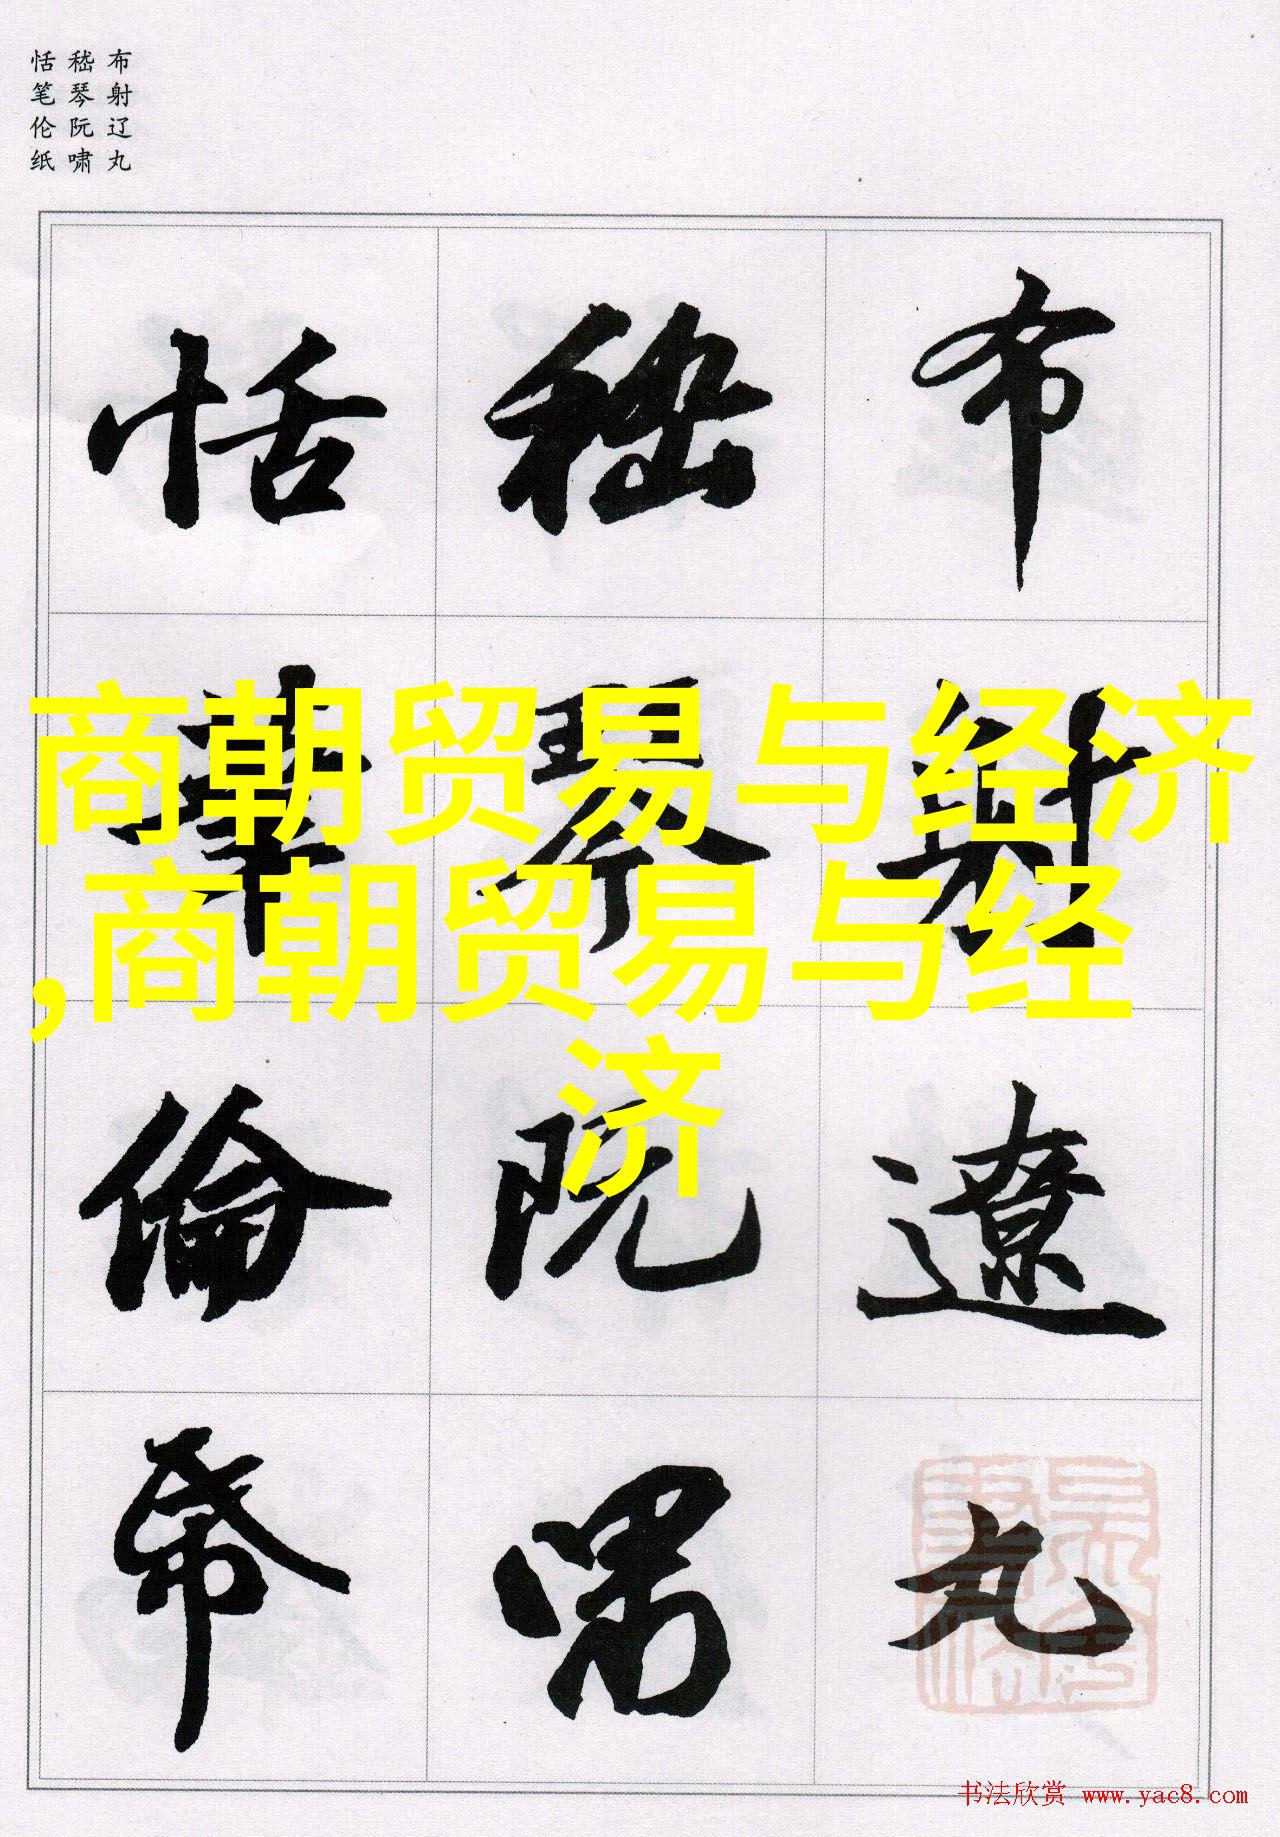 布射辽丸
嵇琴阮啸
恬笔伦纸
商朝贸易与经济
,商朝贸易与经
济
布射遼丸
嵇琴阮嘯
恬筆倫帋
书法欣赏 www.yac8.com